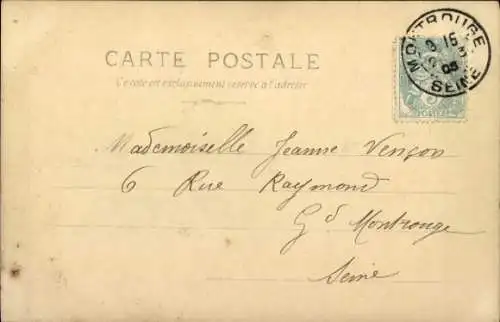 MONTROUGE
SEINE
CARTE POSTALE
Ce côté est exclusivement réservé à l'adresse
Mademoiselle Jeanne Vençon
6 Rue Raymond
Gd Montrouge
Seine